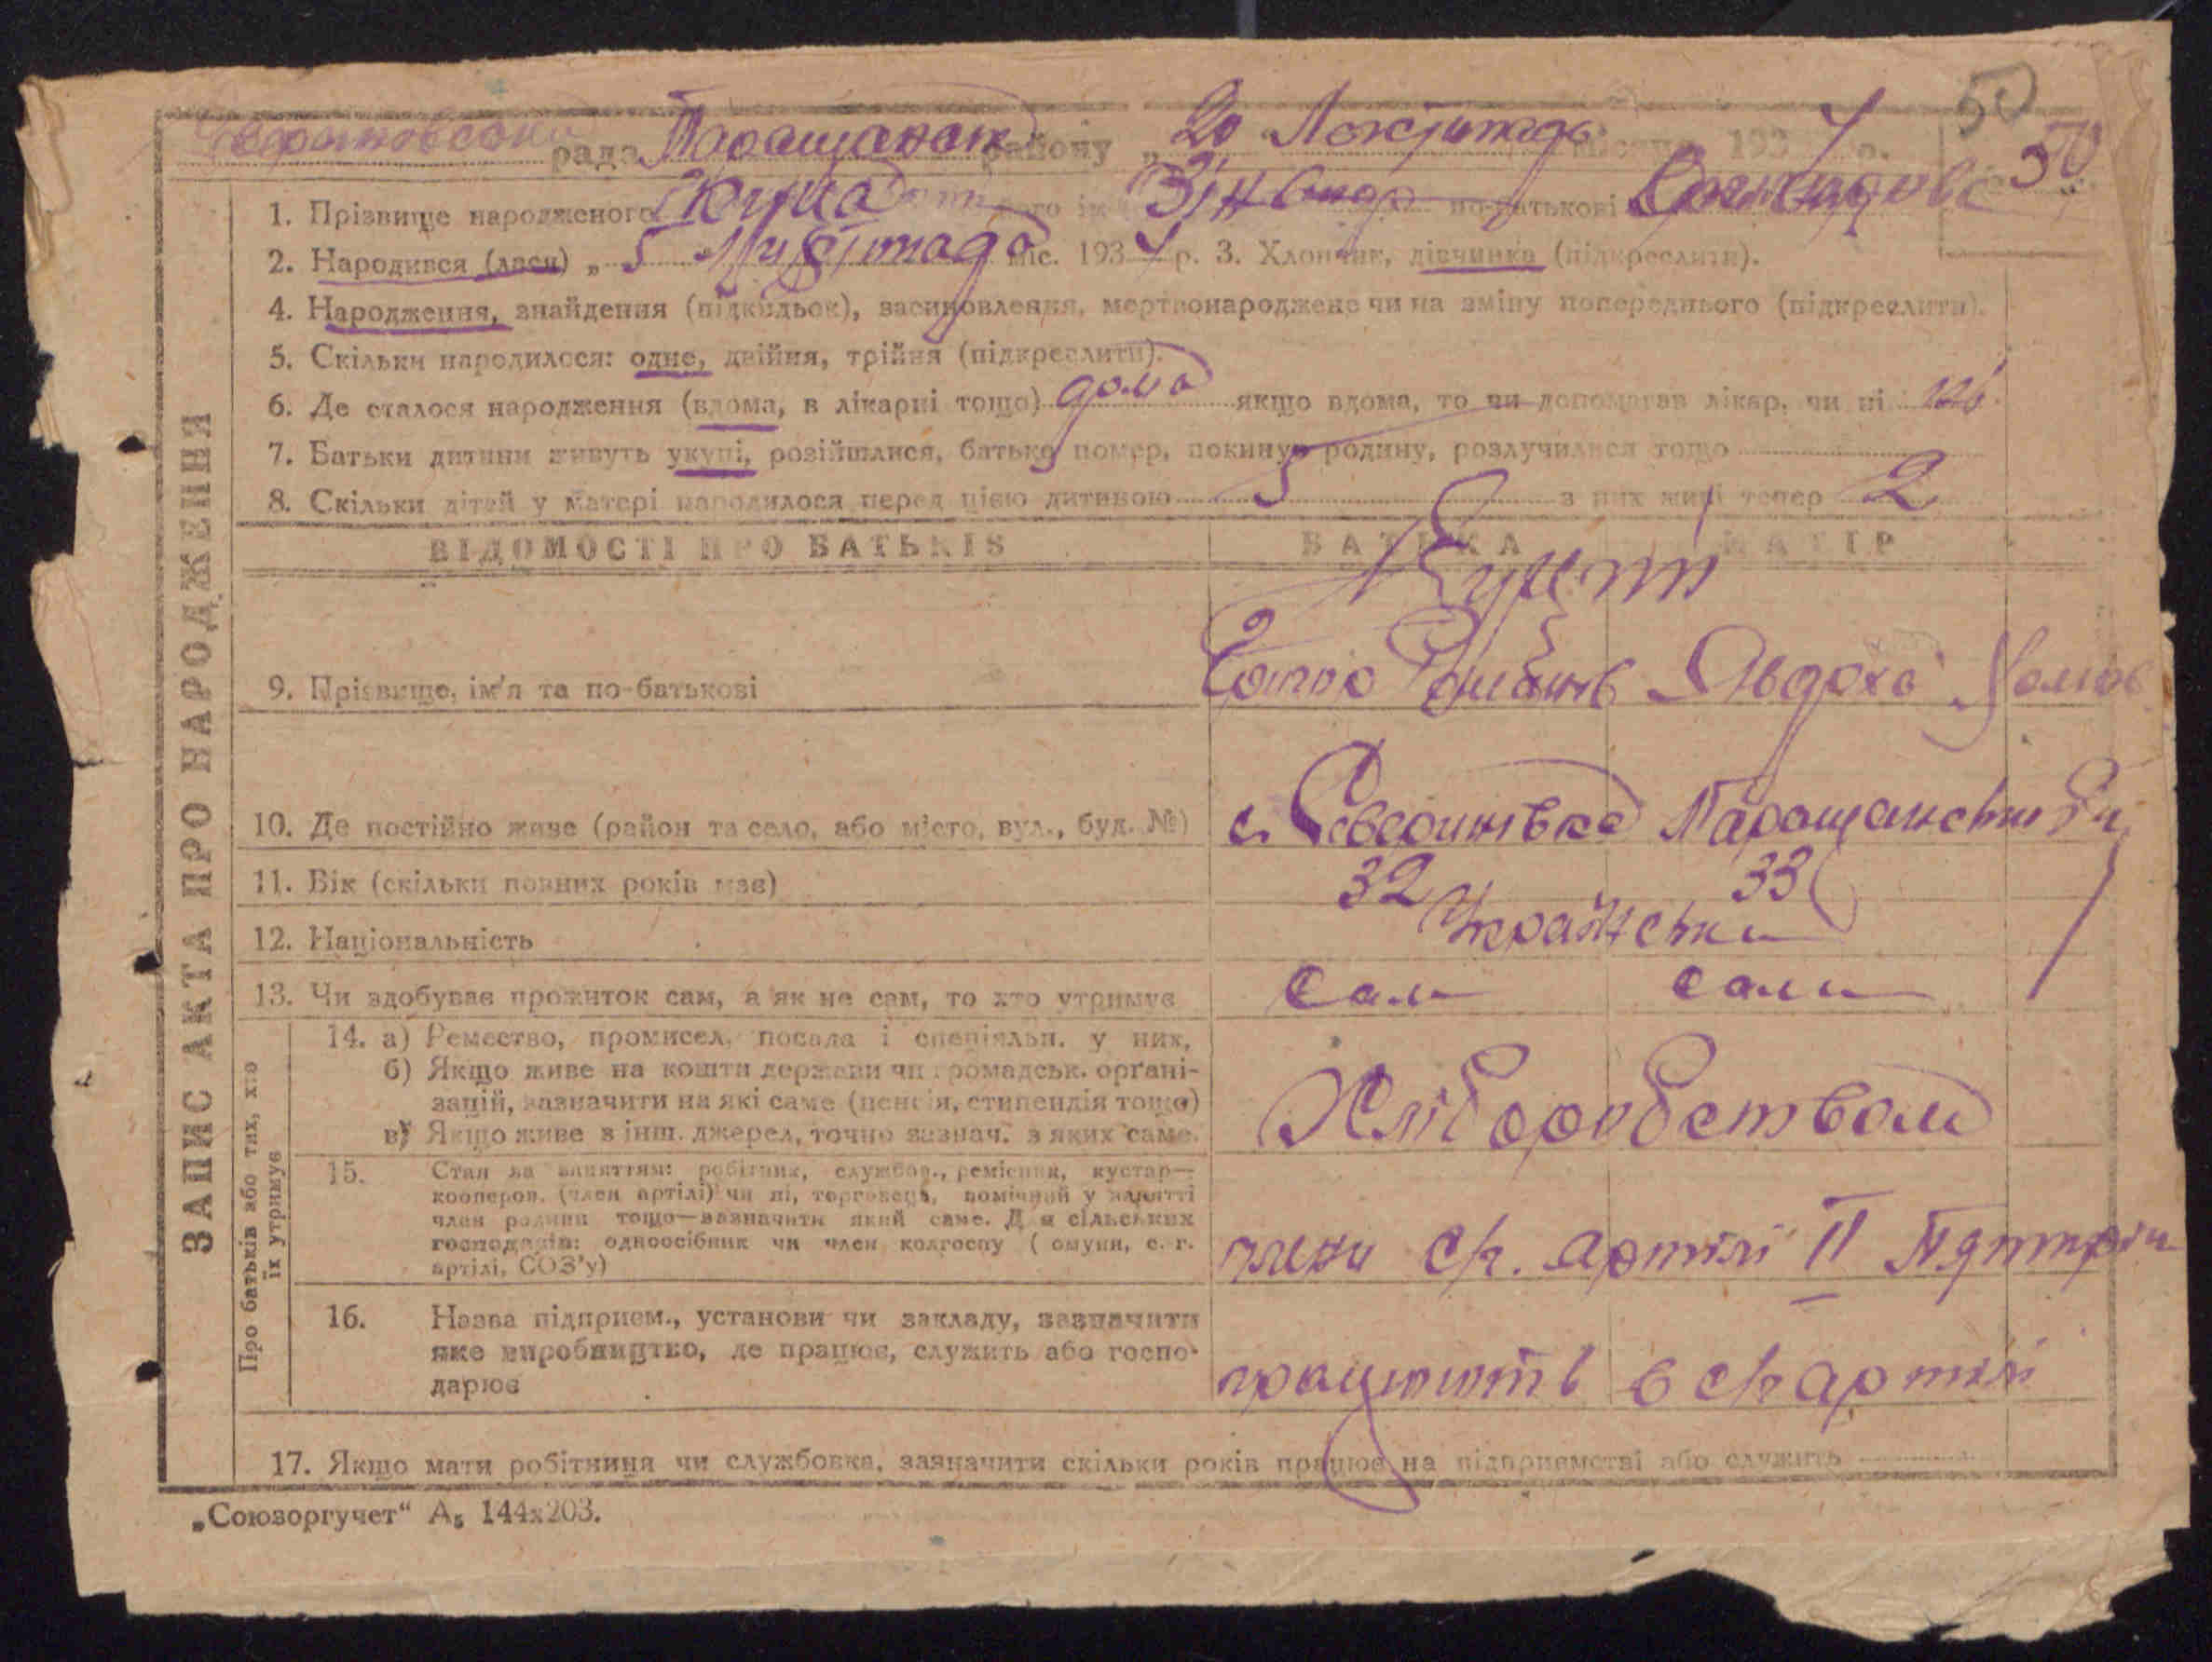 рада Таращанськ району „ 20 Листопада місяця 1934 р. 50
50
1. Прізвище народженого його ім'я по-батькові
2. Народився (лась) „ 5 Листопада міс. 1934 р. 3. Хлопчик, дівчинка (підкреслити).
4. Народження, знайдення (підкидьок), засиновлення, мертвонароджене чи на зміну попереднього (підкреслити).
5. Скільки народилося: одне, двійня, трійня (підкреслити).
6. Де сталося народження (вдома, в лікарні тощо) дома якщо вдома, то чи допомагав лікар, чи ні ні
7. Батьки дитини живуть укупі, розійшлися, батько помер, покинув родину, розлучилися тощо
8. Скільки дітей у матері народилося перед цією дитиною 5 з них живі тепер 2
ВІДОМОСТІ ПРО БАТЬКІВ БАТЬКА МАТІР
9. Прізвище, ім'я та по-батькові Явдоха
10. Де постійно живе (район та село, або місто, вул., буд. №) с. Северинівка Таращанськи
11. Вік (скільки повних років має) 32 33
12. Національність Українськи
13. Чи здобуває прожиток сам, а як не сам, то хто утримує Сам сами
14. а) Ремество, промисел, посада і спеціяльн. у них,
б) Якщо живе на кошти держави чи громадськ. орґані-
зацій, зазначити на які саме (пенсія, стипендія тощо)
в) Якщо живе з інш. джерел, точно зазнач. з яких саме.
Хліборобством
15. Стан за заняттям: робітник, службов., ремісник, кустар—
кооперов. (член артілі) чи ні, торговець, помічний у занятті
член родини тощо—зазначити який саме. Для сільських
господарів: одноосібник чи член колгоспу ( омуни, с. г.
артілі, СОЗ'у)
члени с/г. артілі II
16. Назва підприєм., установи чи закладу, зазначити
яке виробництво, де працює, служить або госпо-
дарює
працюють в с/г артілі
17. Якщо мати робітниця чи службовка, зазначити скільки років працює на підприємстві або служить
ЗАПИС АКТА ПРО НАРОДЖЕННЯ
Про батьків або тих, хто
їх утримує
„Союзоргучет“ А₅ 144x203.